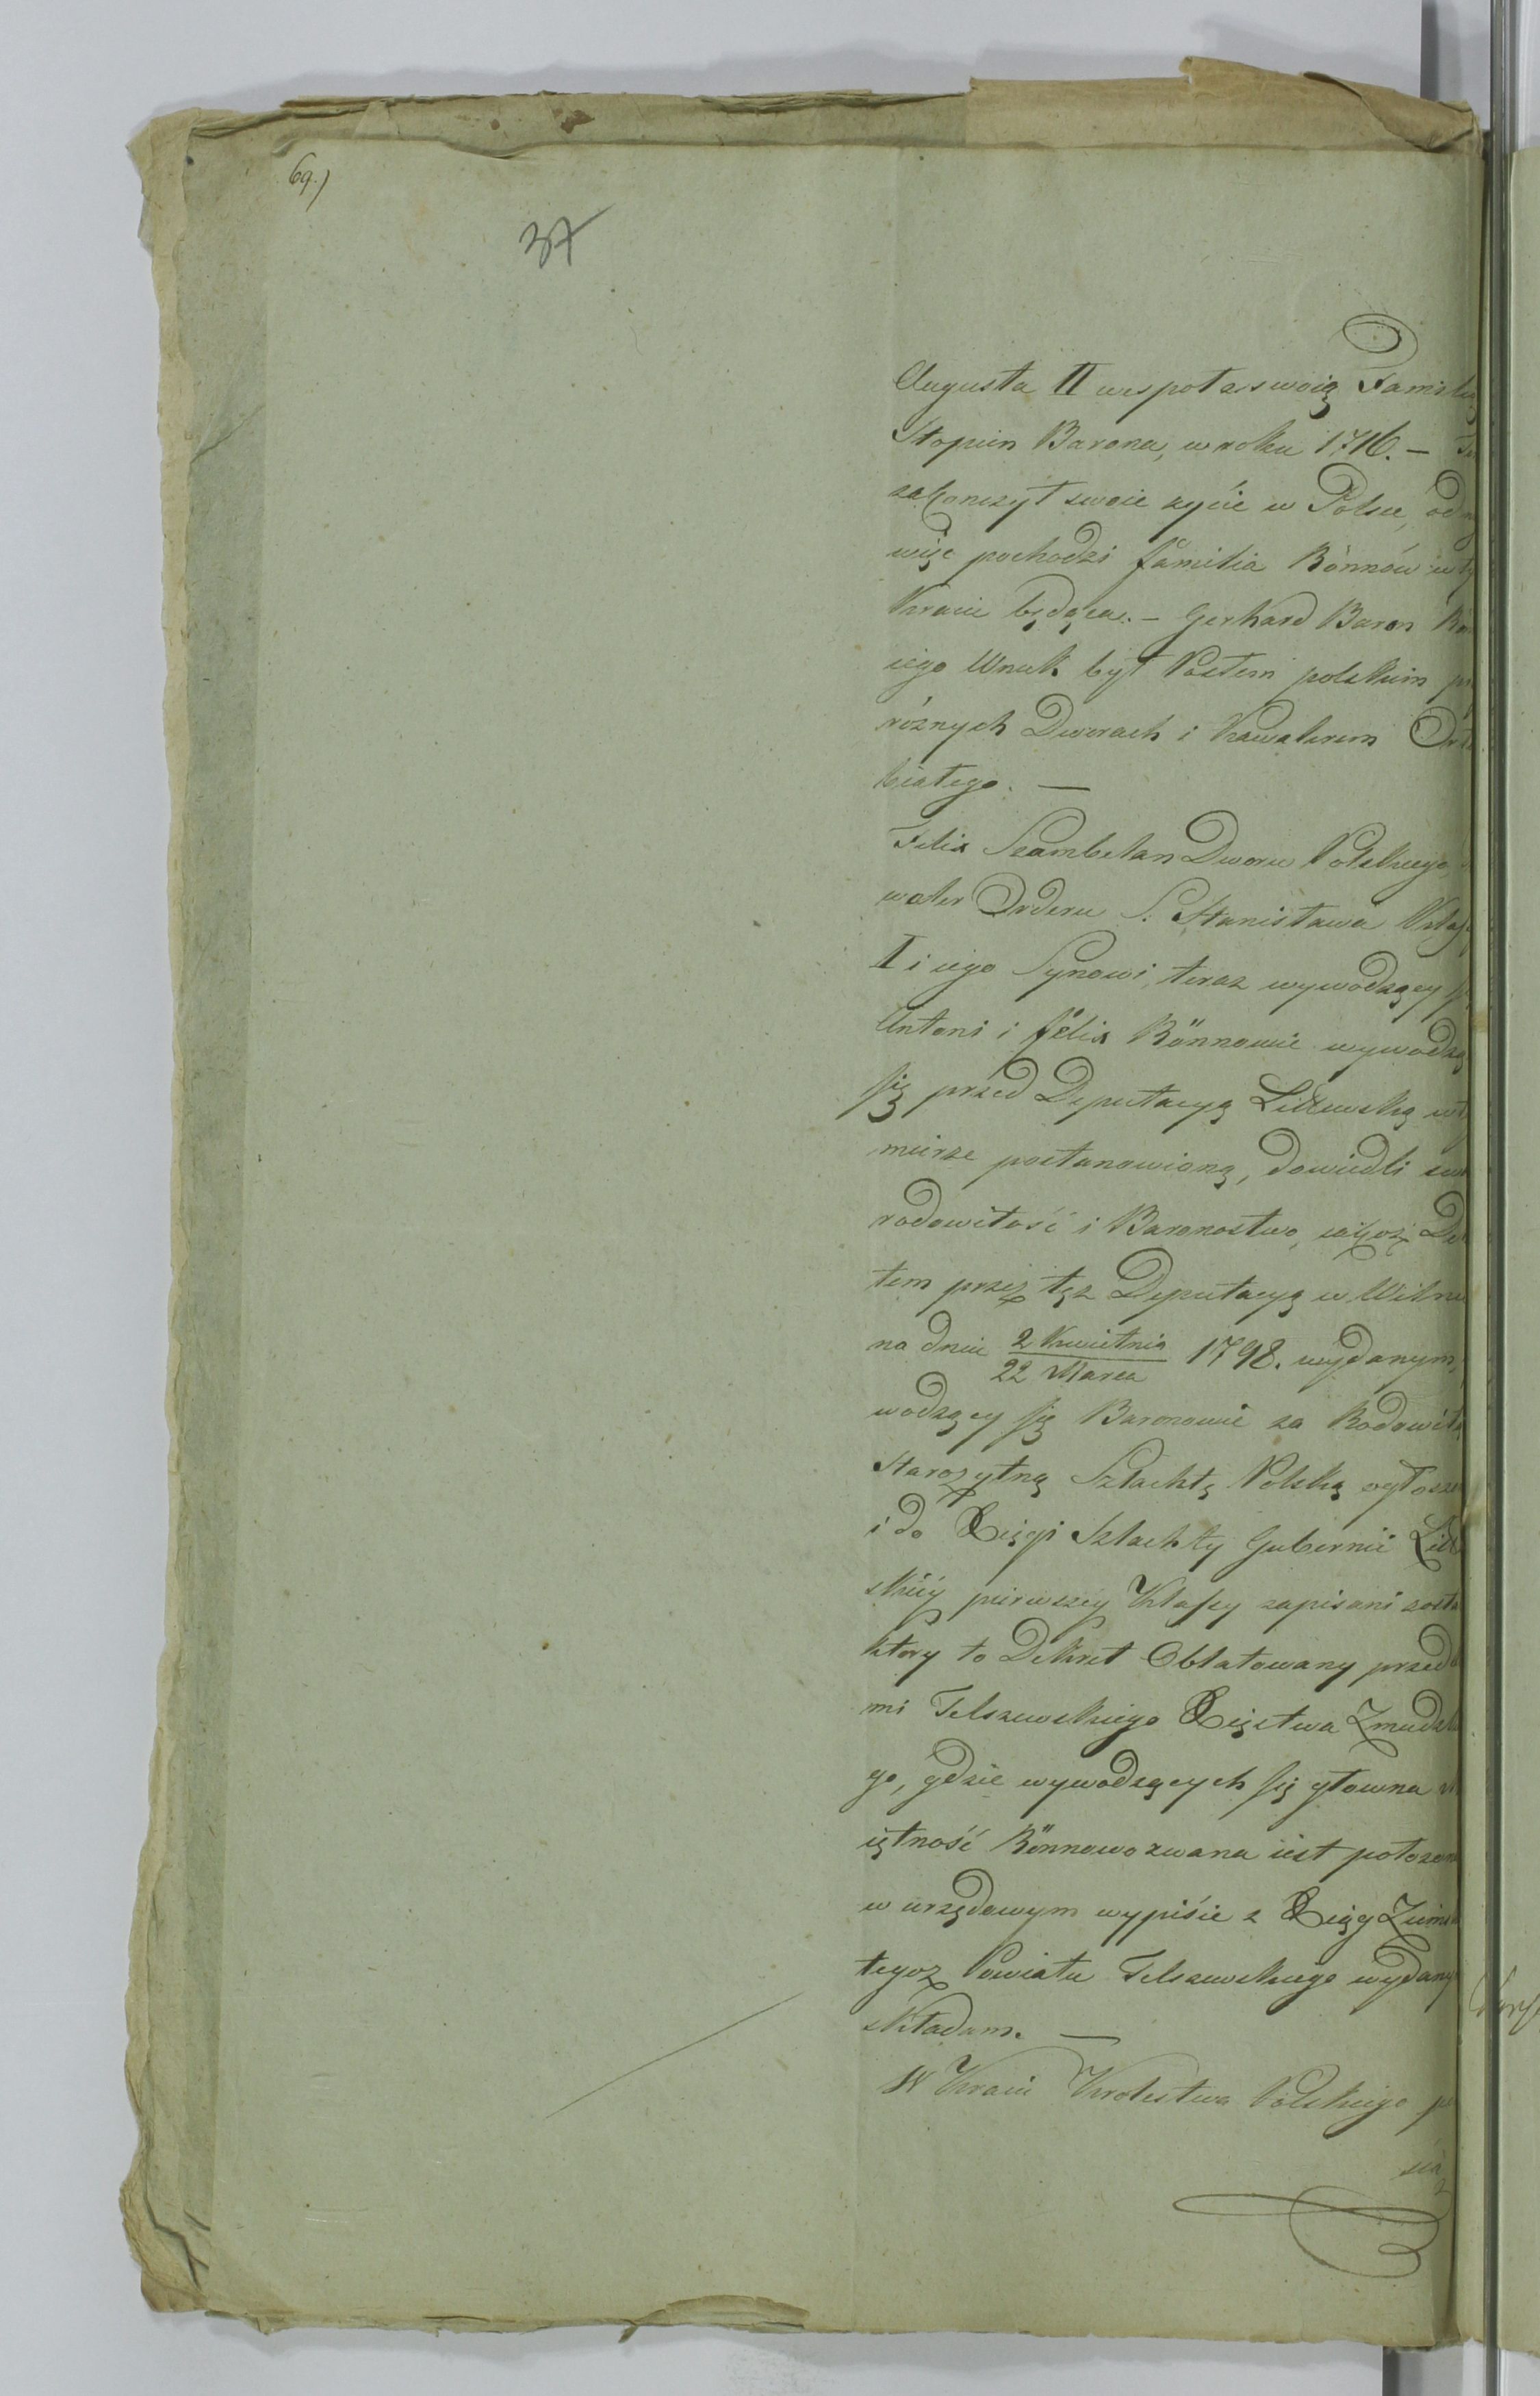 69.)
37
Augusta II wespoł ze swoią Familią
Stopien Barona, w roku 1716. –
zakonczył swoie zycie w Polsce, od
więc pochodzi familia Rönnów w
Kraiu będąca. – Gerhard Baron Rön
iego Wnuk był Posłem polskim
roznych Dworach i Kawalerem Orł
białego. —
Felix Szambelan Dworu Polskiego,
waler Orderu S. Stanisława Klas
I i iego Synowi, teraz wywodzący
Antoni i felix Rönnowie wywodzą
się przed Deputacyą Littewską w
mierze postanowioną, dowiedli sw
rodowitość i Baronostwo, iakoż De
tem przez tęz Deputacyą w Wilnie
na dniu 2 Kwietnia 1798. wydanym,
22 Marca
wodzący się Baronowie za Rodowitą
Starozytną Szlachtę Polską ogłosze
i do Xięgi Szlachty Gubernii Litt
skiey pierwszey Klassy zapisani zosta
ktory to Dekret Oblatowany przed
mi Telszewskiego Xięstwa Zmudzk
go, gdzie wywodzących się głowna
iętność Rönnowo zwana iest połozona
w urzędowym wypisie z Xiąg Ziems
tegoz Powiatu Telszewskiego wydany
składam. —
W Kraiu Krolestwa Polskiego
sia